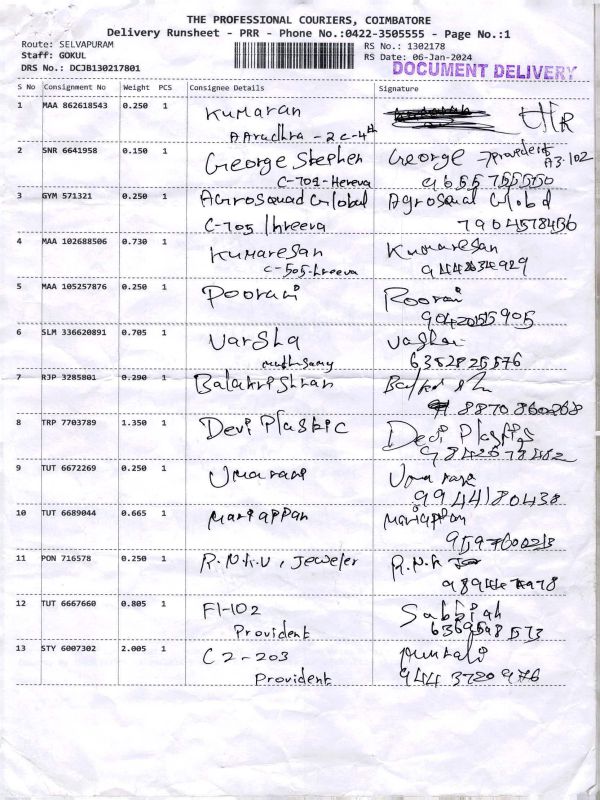 THE PROFESSIONAL COURIERS, COIMBATORE
Delivery Runsheet - PRR - Phone No.:0422-3505555 - Page No.:1
Route: SELVAPURAM
Staff: GOKUL
DRS No.: DCJB130217801
RS No.: 1302178
RS Date: 06-Jan-2024
DOCUMENT DELIVERY
S No Consignment No Weight PCS Consignee Details Signature
1 MAA 862618543 0.250 1 Kumaran
AArudhra - 2C-4th
2 SNR 6641958 0.150 1 George Stephen George → Provident
C-701-Hereva A3-102
9655755550
3 GYM 571321 0.250 1 Agrosquad Global Agrosquad Global
C-705 Ihreeva 7904578456
4 MAA 102688506 0.730 1 Kumaresan Kumaresan
C-505-hreeva 9442634929
5 MAA 105257876 0.250 1 Poorani Poorani
9042055905
6 SLM 336620891 0.705 1 Varsha
muthusamy 6352825576
7 RJP 3285801 0.290 1 Balakrishnan
8870860268
8 TRP 7703789 1.350 1 Devi Plastic Devi Plastics
9842578462
9 TUT 6672269 0.250 1 Umarani Uma rani
9944180438
10 TUT 6689044 0.665 1 Mariappan Mariappan
9597600213
11 PON 716578 0.250 1 R.N.K.V. Jeweler R.N.K
12 TUT 6667660 0.805 1 F1-102
Provident 6369598573
13 STY 6007302 2.005 1 C2-203
Provident 9443720976